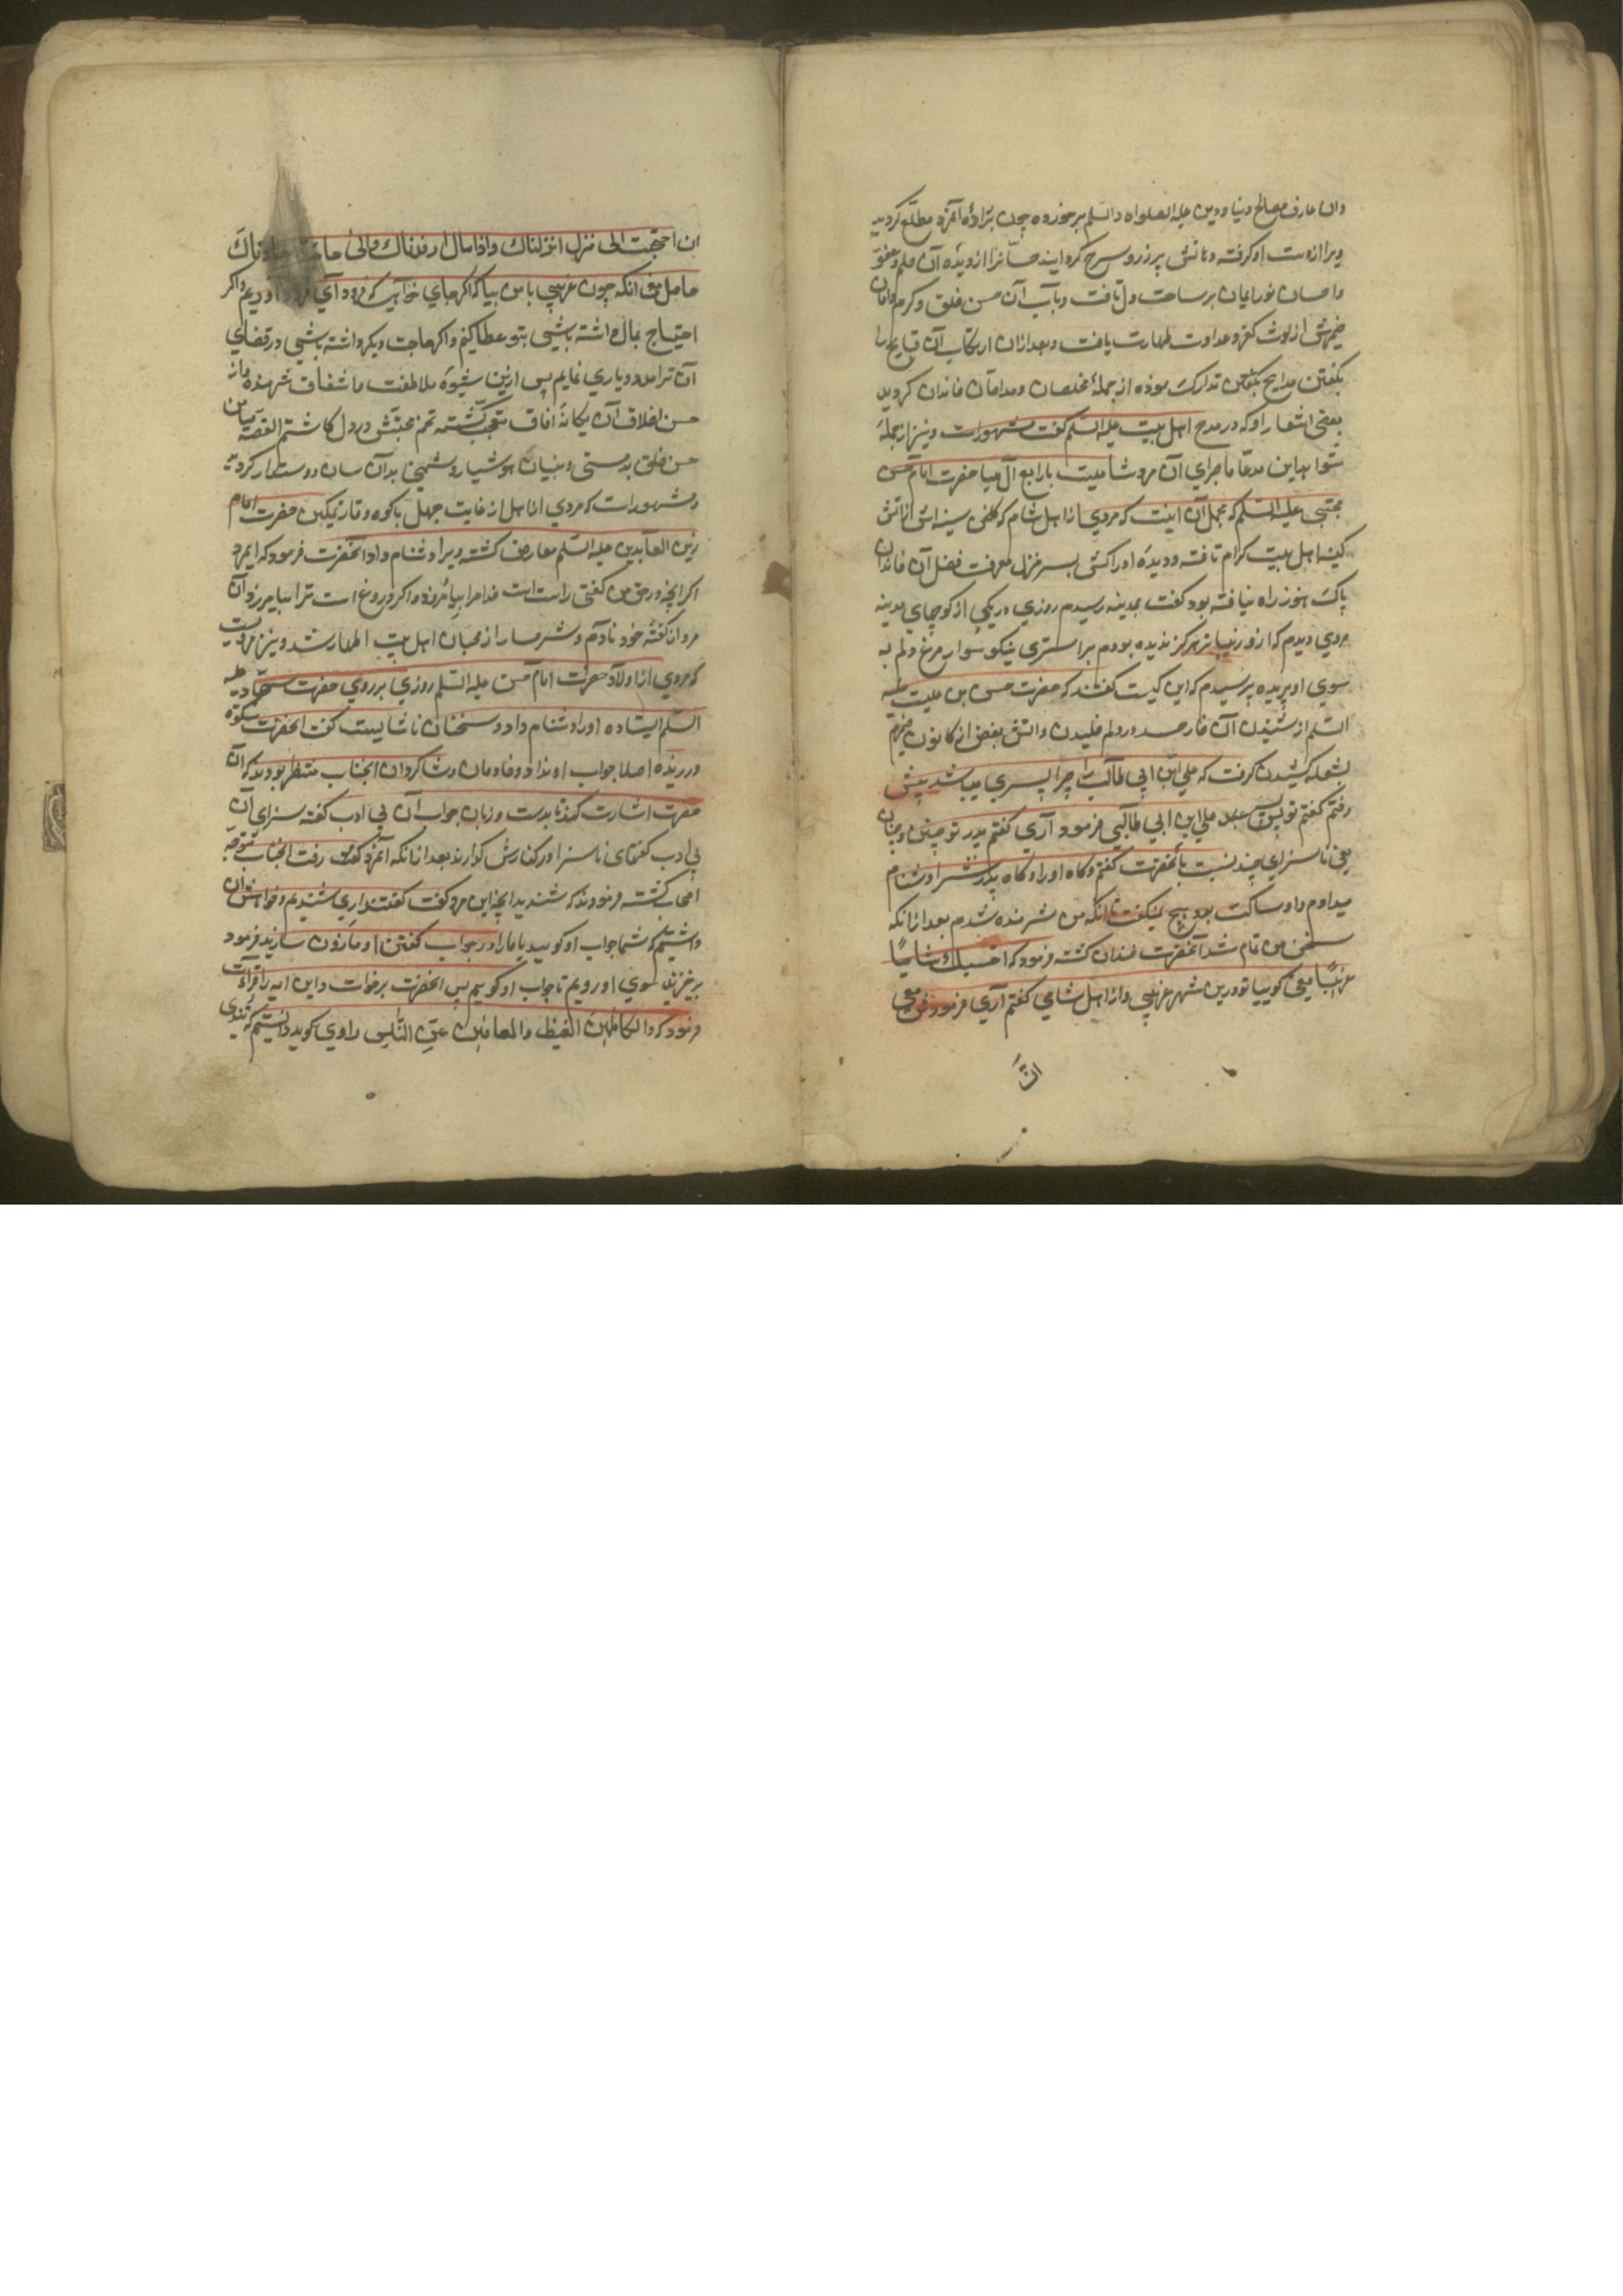 وان عارف مصالح دنیا و دین علیه الصلواه والسلم برخورده چون بر ارادۀ آنمرد مطلع کردید
ویرا از دست او کرفته دهانش پر زر و سرخ کردانید حسانرا از دیدۀ آن حلم و عفو
و احسان نور ایمان بر ساحت دل تافت و بآب آن حسن خلق و کرم دامان
ضمیرش از لوث کفر و عداوت طهارت یافت و بعد از ان ارتکاب آن قبایح را
بکفتن مدایح تدارک نموده از جملۀ مخلصان و مداحان خاندان کردید
بعضی اشعار او که در مدح اهل بیت علیه السلم کفت مشهور است و نیز از جملۀ
شواهد این مدعا ماجرای آن مرد شامیست با رابع آل عبا حضرت امام حسن
مجتبی علیه السلم که مجمل آن اینست که مردی از اهل شام که کلخن سینه اش از آتش
کینۀ اهل بیت کرام تافته و دیدۀ ادراکش بسر منزل معرفت فضل آن خاندان
پاک هنوز راه نیافته بود کفت بمدینه رسیدم روزی در یکی از کوچهای مدینه
مردی دیدم که از و زیباتر هرکز ندیده بودم بر استری نیکو سوار مرغ دلم به
سوی او پریده پرسیدم که این کیست کفتند که حضرت حسن بن علیست علیه
السلم از شنیدن آن خار حسد در دلم خلیدن و اتش بغض از کانون ضمیرم
بشعله کشیدن کرفت که علی ابن ابی طالب را چرا پسری میباشد پیش
رفتم کفتم تو پسر علی ابن ابی طالبی فرمود آری کفتم پدر تو چنین و چنان
یعنی ناسزای چند نسبت بآنحضرت کفتم و کاه او را و کاه پدرش را دشنام
میدادم و او ساکت بود هیچ نمیکفت تا انکه من شرمنده شدم بعد از انکه
سخن من تمام شد آنحضرت خندان کشته فرمود که احسبک شامیا
غریبا یعنی کوییا تو درین شهر غریبی و از اهل شامی کفتم آری فرمود فمل معی
ان
ان احتجت الی منزل انزلناک و اذا مال ارفدناک و الی حاجة عاوناک
حاصل معنی انکه چون غریبی با من بیا که اکر جای خواهی که فرود آی فرود آوریم و اکر
احتیاج بمال داشته باشی بتو عطا کنیم و اکر حاجت دیکر داشته باشی در قضای
آن ترا مدد و یاری نمایم پس ازین شیوۀ ملاطفت و اشفاق شرمنده و از
حسن اخلاق آن یکانۀ آفاق متعجب کشته تخم محبتش در دل کاشتم القصه بیمن
حسن خلق بدمستی دشمنان هوشیار و دشمنی بدآن سان دوستدار کردید
و مشهور است که مردی از اهل از غایت جهل با کوه وقار و تمکین حضرت امام
زین العابدین علیه السلم معارض کشته ویرا دشنام داد آنحضرت فرمود که ایمرد
اکر انچه در حق من کفتی راست است خدا مرا بیامرزد و اکر دروغ است ترا بیامرزد آن
مرد از کفتۀ خود نادم و شرمسار از محبان اهل بیت اطهار شد و نیز مرویست
که مردی از اولاد حضرت امام حسن علیه السلم روزی بر روی حضرت سجاد علیه
السلم ایستاده او را دشنام داد و سخنان ناشایست کفت انحضرت سکوت
ورزیده اصلا جواب او نداد و خادمان و شاکردان انجناب منتظر بودند که آن
حضرت اشارت کند تا بدست و زبان جواب آن بی ادب کفته سزای آن
بی ادب کفتهای ناسزا در کنارش کذارند بعد از انکه آنمرد کفت و رفت انجناب متوجه
اصحاب کشته فرمودند که شنیدید انچه این مرد کفت کفتند آری شنیدیم و خواهش آن
داشتیم که شما جواب او کویید یا ما را در جواب کفتن او مأذون سازید فرمود
برخیزید سوی او رویم تا جواب او کویم پس انحضرت برخواست و این ایه را قرائت
فرمود که و الکاظمین الغیظ و العافین عن الناس راوی کوید دانستیم که تندی